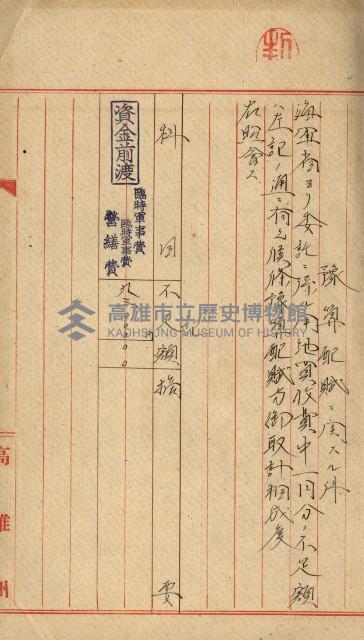 豫算配賦ニ関スル件
海軍省ヨリ委託ニ係ル用地買収費中一同分ノ不足額
ハ左記ノ通ニ有之候條豫算配賦方御取計相成度
右照會ス
科目 不足額 摘要
資金前渡
臨時軍事費
臨時軍事費
營繕費
高雄市立歷史博物館
KAOHSIUNG MUSEUM OF HISTORY
高雄州